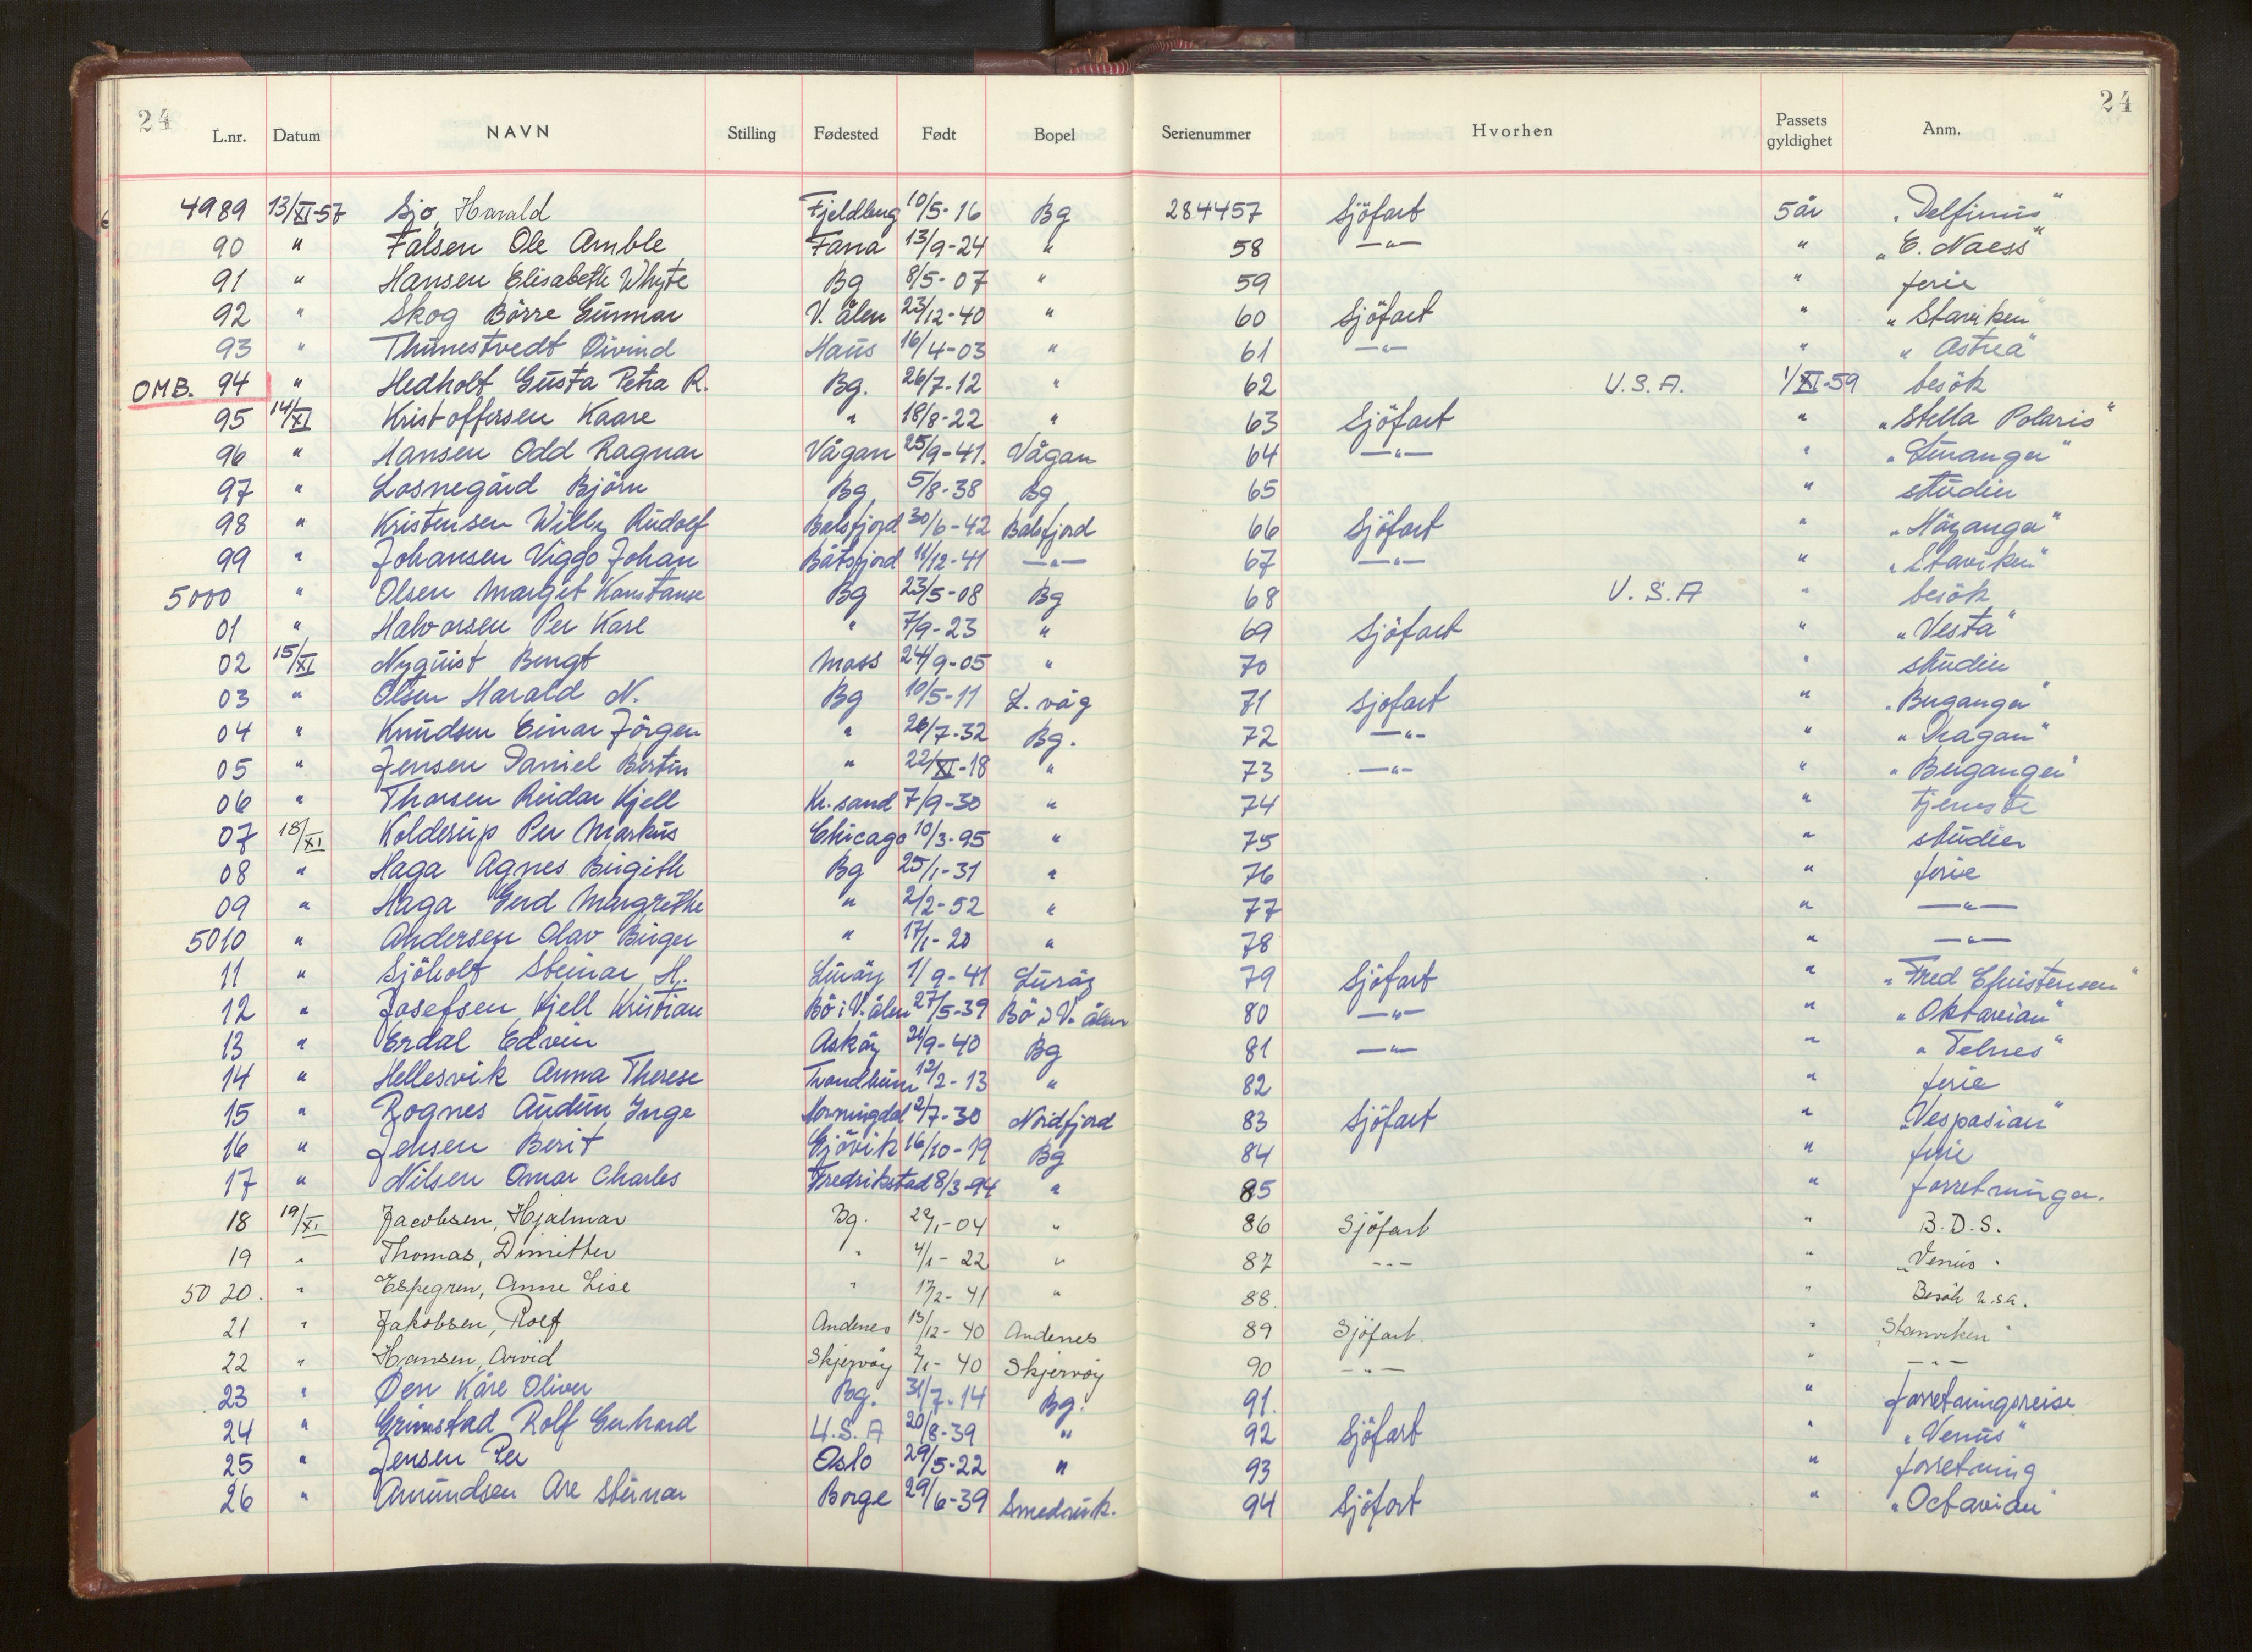 24 24
L.nr. Datum NAVN Stilling Fødested Født Bopel Serienummer Hvorhen Passets gyldighet Anm.
4989 13/XI-57 Sjo, Harald Fjeldberg 10/5-16 Bg 284457 Sjöfart 5 år "Delfinus"
90 " Falsen Ole Amble Fana 13/9-24 " 58 —"— " "E. Naess"
91 " Hansen Elisabeth Whyte Bg 8/5-07 " 59 " ferie
92 " Skog Börre Gunnar V. ålen 23/12-40 " 60 Sjöfart " "Staviken"
93 " Thunestvedt Öivind Haus 16/4-03 " 61 —"— " "Astrea"
OMB. 94 " Hedholt Gusta Petra R. Bg. 26/7-12 " 62 U.S.A. 1/XI-59 besök
95 14/XI Kristoffersen Kaare " 18/8-22 " 63 Sjöfart " "Stella Polaris"
96 " Hansen Odd Ragnar Vågan 25/9-41. Vågan 64 —"— "
97 " Losnegård Björn Bg 5/8-38 Bg 65 " studier
98 " Kristensen Willy Rudolf Balsfjord 30/6-42 Balsfjord 66 Sjöfart " "Höyanger"
99 " Johansen Viggo Johan Båtsfjord 11/12-41 —"— 67 —"— " "Staviken"
5000 " Olsen Margit Konstanse Bg 23/5-08 Bg 68 U.S.A " besök
01 " Halvorsen Per Kare " 7/9-23 " 69 Sjöfart " "Vesta"
02 15/XI Nyquist Bengt Moss 24/9-05 " 70 " studier
03 " Olsen Harald N. Bg 10/5-11 L. våg 71 Sjöfart " "Berganger"
04 " Knudsen Einar Jörgen " 26/7-32 Bg. 72 —"— "
05 " Jensen Daniel Bertin " 22/XI-18 " 73 —"— " "Berganger"
06 " Thorsen Reidar Kjell Kr.sand 7/9-30 " 74 " tjeneste
07 18/XI Kolderup Per Markus Chicago 10/3-95 " 75 " studier
08 " Haga Agnes Birgith Bg 25/1-31 " 76 " ferie
09 " Haga Gerd Margrethe " 2/2-52 " 77 " —"—
5010 " Andersen Olav Birger " 17/1-20 " 78 " —"—
11 " Sjöholt Steinar H. Luröy 1/9-41 Luröy 79 Sjöfart " "Fred Christensen"
12 " Josefsen Kjell Kristian Bö i V. ålen 27/5-39 Bö i V. ålen 80 —"— " "Oktavian"
13 " Erdal Edvin Asköy 21/9-40 Bg 81 —"— " "Telnes"
14 " Hellesvik Anna Therese Trondheim 12/2-13 " 82 " ferie
15 " Rognes Audun Inge 2/7-30 Nordfjord 83 Sjöfart " "Vespasian"
16 " Jensen Berit Gjövik 16/10-19 Bg 84 " ferie
17 " Nilsen Omar Charles Fredrikstad 8/3-94 " 85 " forretninger.
18 19/XI Jacobsen, Hjalmar Bg. 22/1-04 " 86 Sjöfart " B.D.S.
19 " Thomas, Dimitter " 4/1-22 " 87 -"- " "Venus"
5020. " Espegren, Anne Lise " 17/2-41 " 88. " Besök U.S.A.
21 " Jakobsen, Rolf Andenes 13/12-40 Andenes 89 Sjöfart. " "Stanviken"
22 " Hansen, Arvid Skjervöy 2/1-40 Skjervöy 90 -"- " -"-
23 " Øen Kåre Oliver Bg. 31/7-14 Bg. 91. " forretningsreise
24 " Grimstad Rolf Gerhard U.S.A 20/8-39 " 92 Sjöfart " "Venus"
25 " Jensen Per Oslo 29/5-22 " 93 " forretning
26 " Amundsen Are Steinar Borge 29/6-39 Smedsvik. 94 Sjöfart " "Octavian"